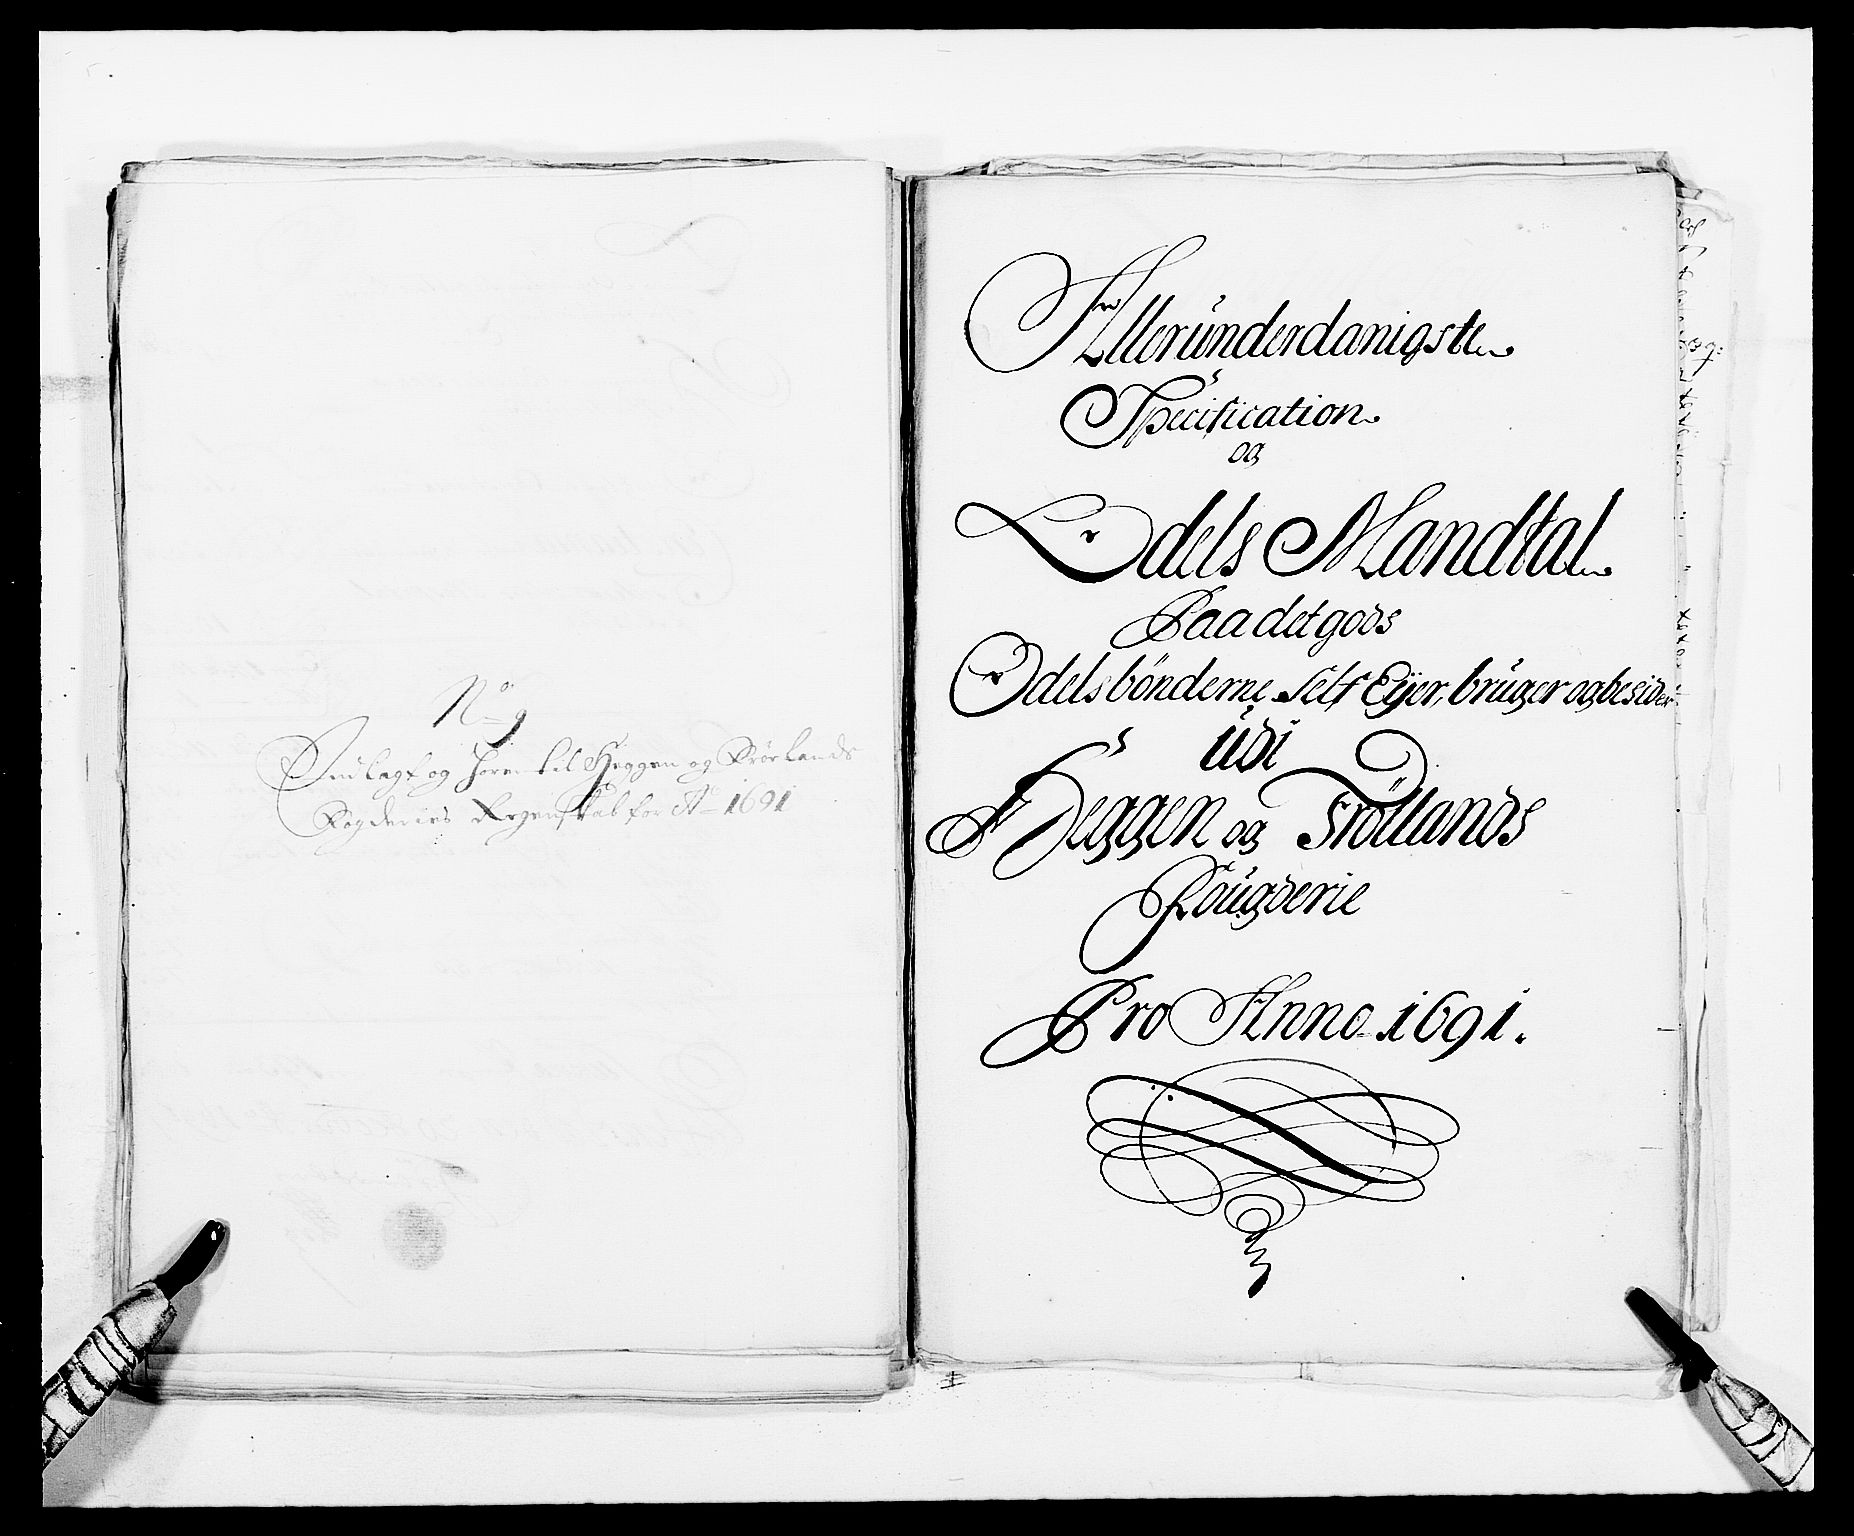 No 9
Indlagt og hører til Heggen og Frølands
Fogderies Regenskab for Ao 1691
Allerúnderdanigste
Specification
og
Odels Mandtal
Paa det gods
Odelsbønderne Self Eÿer, brúger og besider
údi
Heggen og Fröllands
Fougderie
Pro Anno 1691.